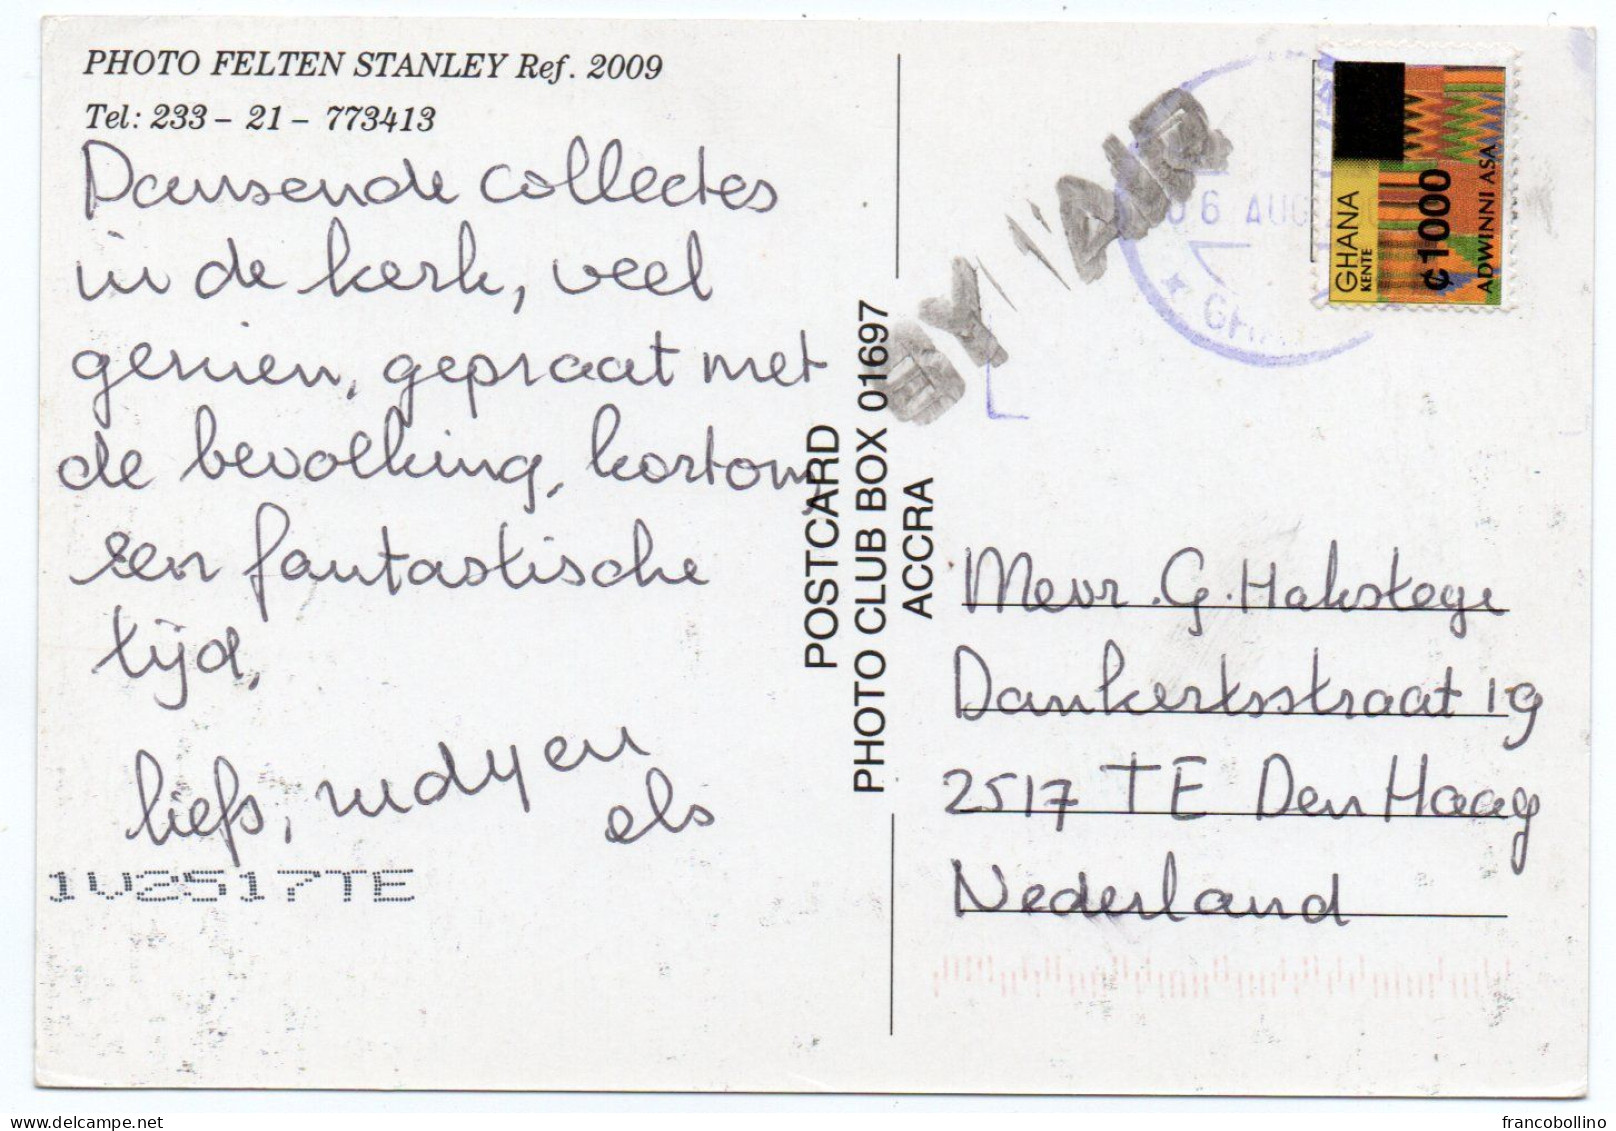 PHOTO FELTEN STANLEY Ref. 2009
Tel: 233 - 21 - 773413
Dansende collectes
in de kerk, veel
genien, gepraat met
de bevolking, kortom,
een fantastische
tijd,
liefs, rudy en
els
1V2517TE
POSTCARD
PHOTO CLUB BOX 01697
ACCRA
BY AIR
06 AUG
GHANA
GHANA
KENTE
¢1000
ADWINNI ASA
Mevr. G. Hakstege
Dankertsstraat 19
2517 TE Den Haag
Nederland
francobollino